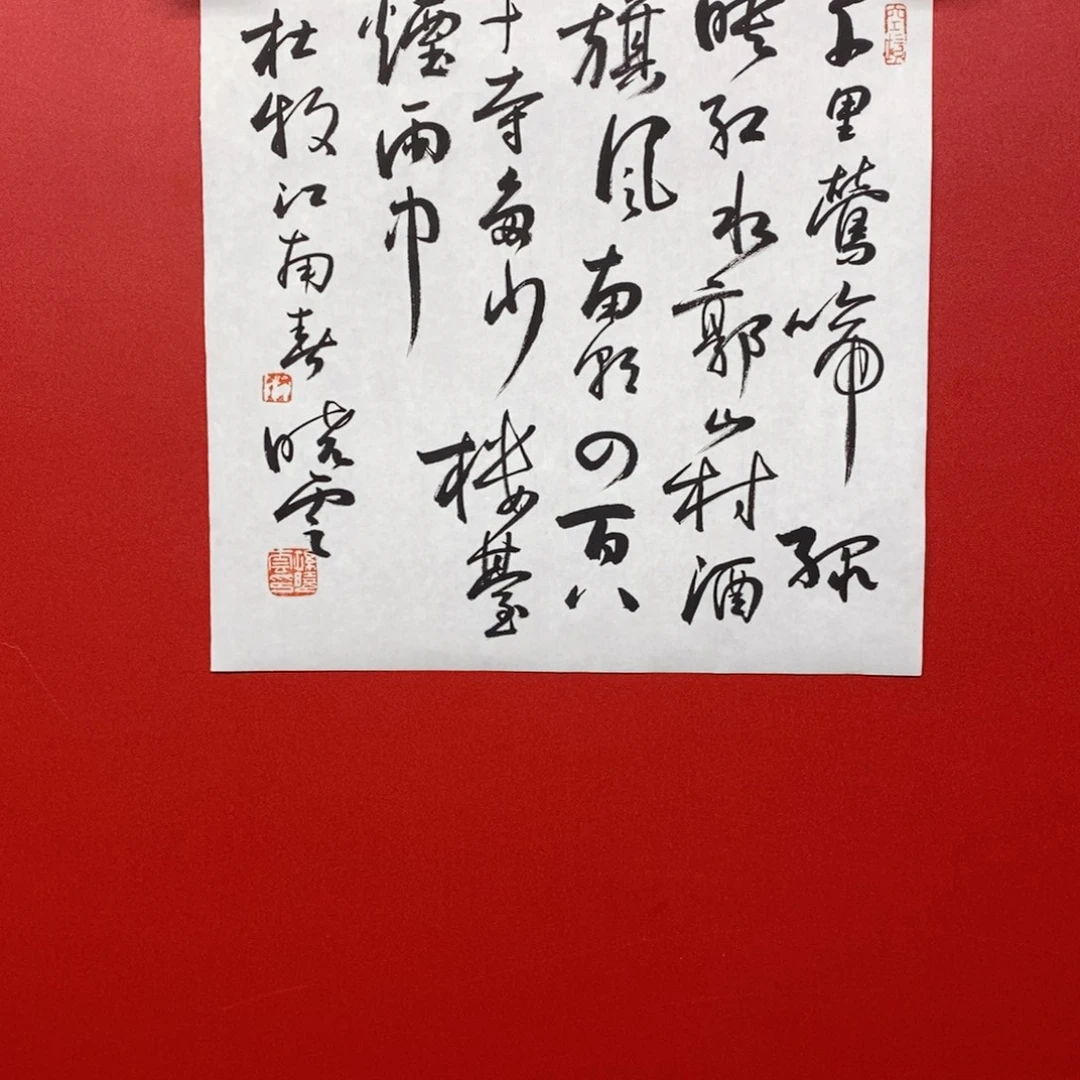 千里鶯啼綠
映紅水郭山村酒
旗風南朝四百八
十寺多少楼臺
煙雨中
杜牧江南春
晓雲